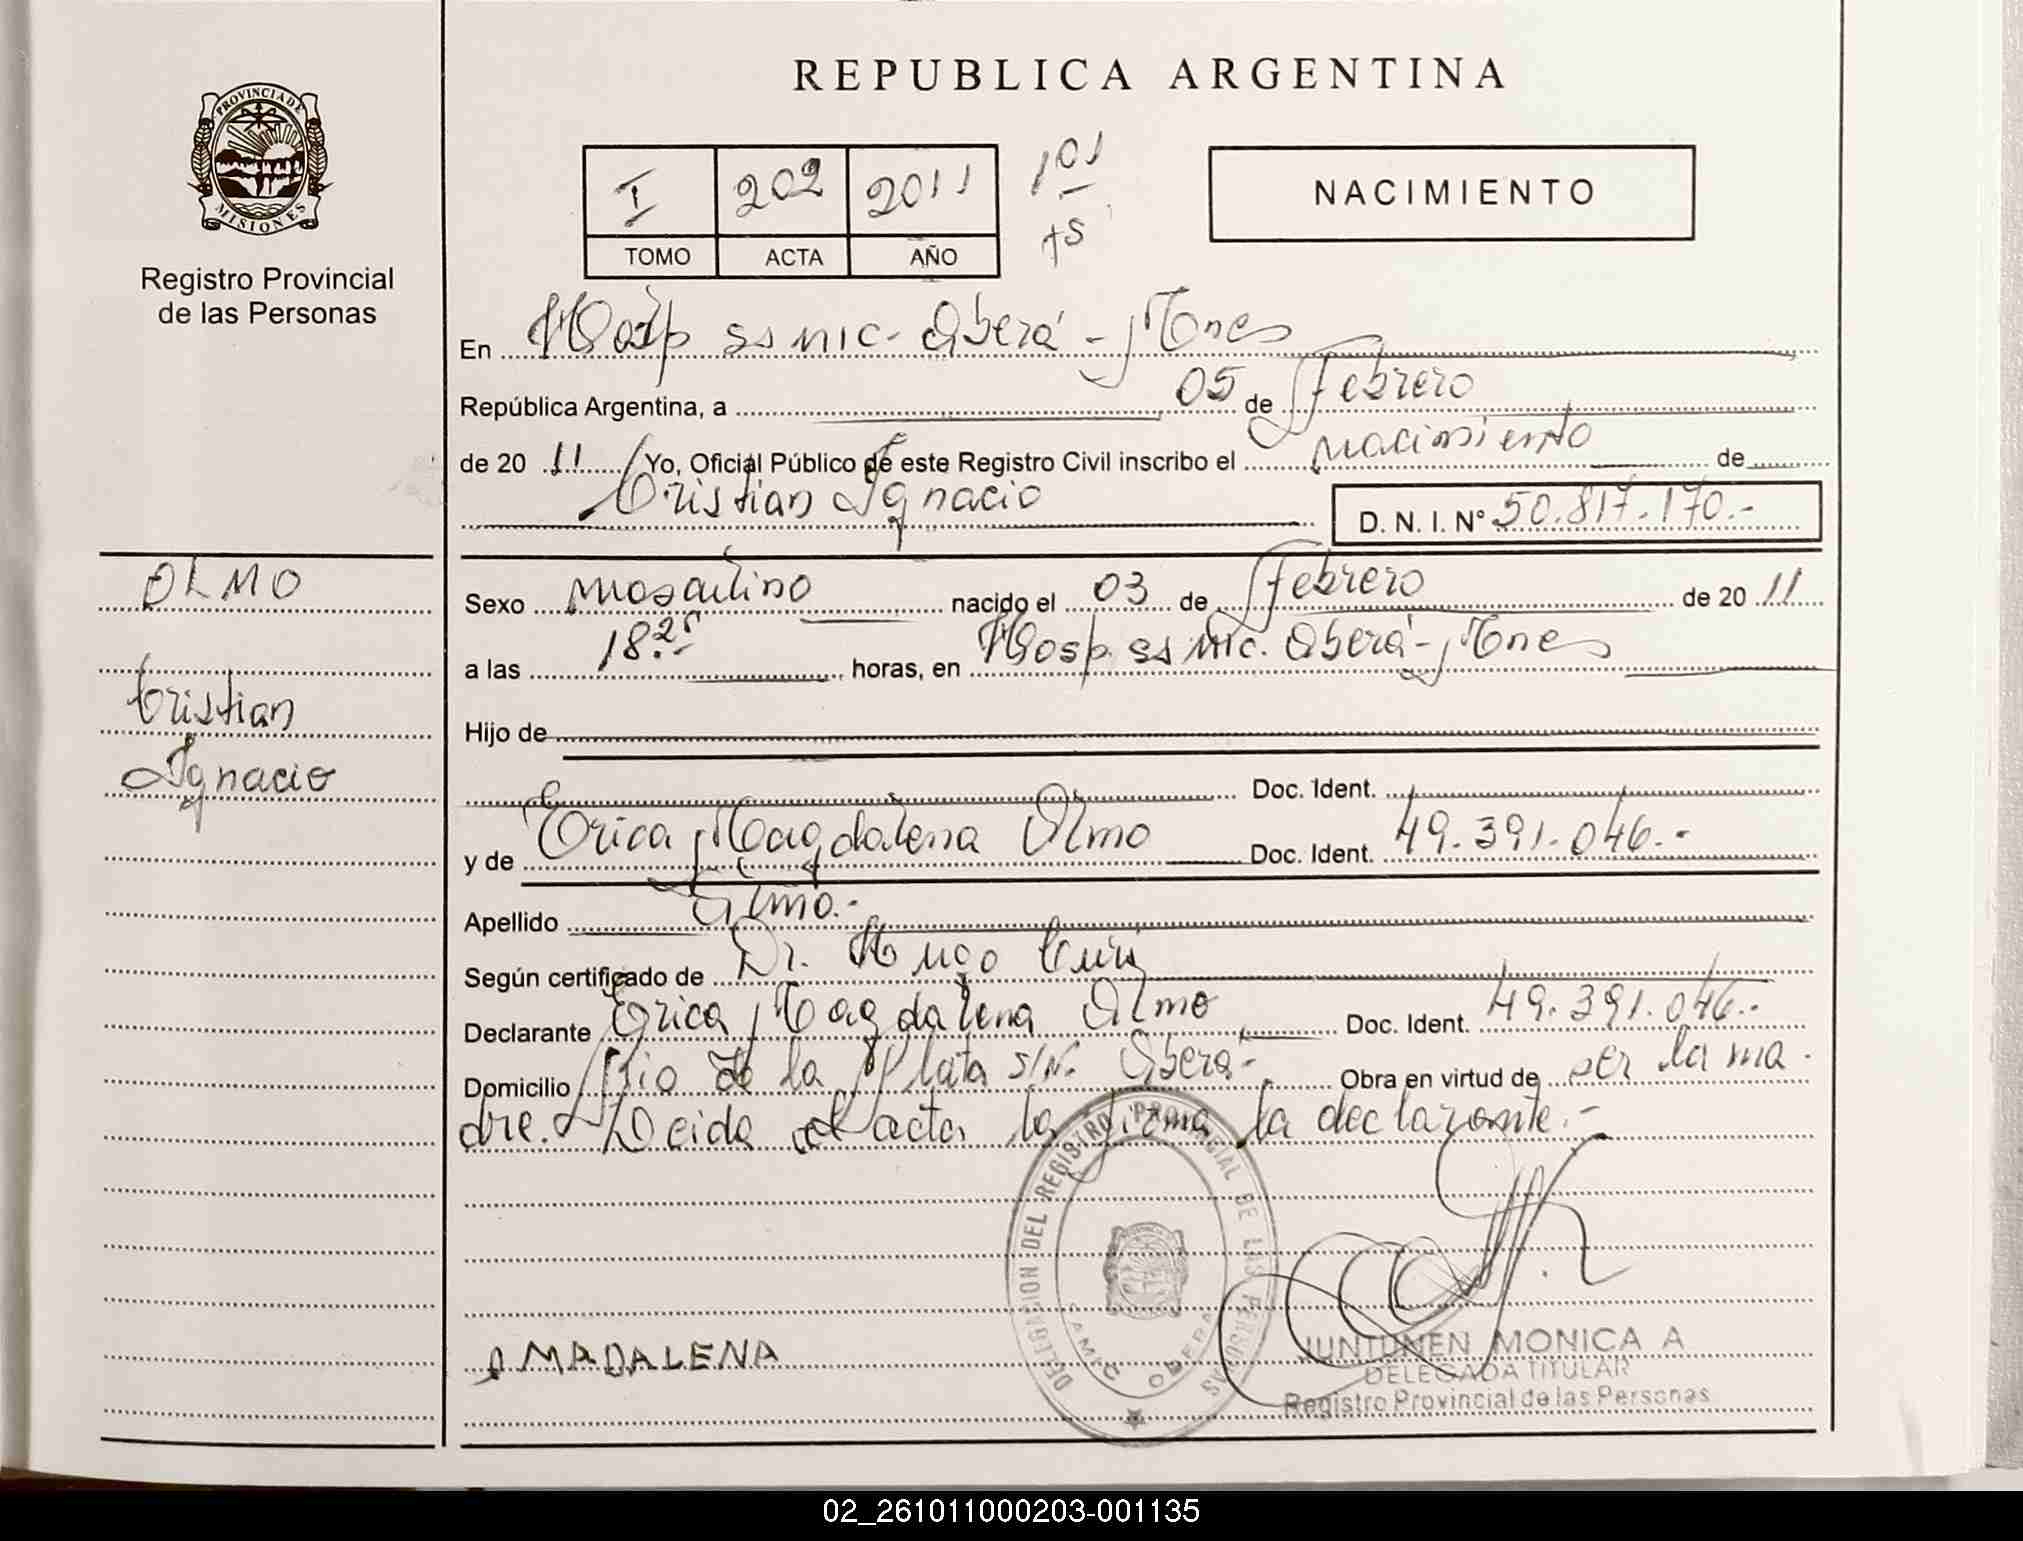 REPUBLICA ARGENTINA
PROVINCIA DE
MISIONES
Registro Provincial
de las Personas
I 202 2011 101
TOMO ACTA AÑO
NACIMIENTO
En Hosp ss mic - Oberá - Mnes
República Argentina, a 05 de Febrero
de 20 11 Yo, Oficial Público de este Registro Civil inscribo el nacimiento de
Cristian Ignacio D. N. I. N° 50.817.170.-
OLMO
Cristian
Ignacio
Sexo masculino nacido el 03 de Febrero de 20 11
a las 18.25 horas, en Hosp ss mic. Oberá - Mnes
Hijo de
Doc. Ident.
y de Erica Magdalena Olmo Doc. Ident. 49.391.046.-
Apellido Olmo.-
Según certificado de Dr. Hugo
Declarante Erica Magdalena Olmo Doc. Ident. 49.391.046.-
Domicilio Rio de la Plata s/N. Oberá - Obra en virtud de ser la ma
dre. Leida el acta la firma la declarante.-
DELEGACION DEL REGISTRO PROVINCIAL DE LAS PERSONAS
SAMIC OBERA
MADALENA
JUNTUNEN MONICA A
DELEGADA TITULAR
Registro Provincial de las Personas
02_261011000203-001135